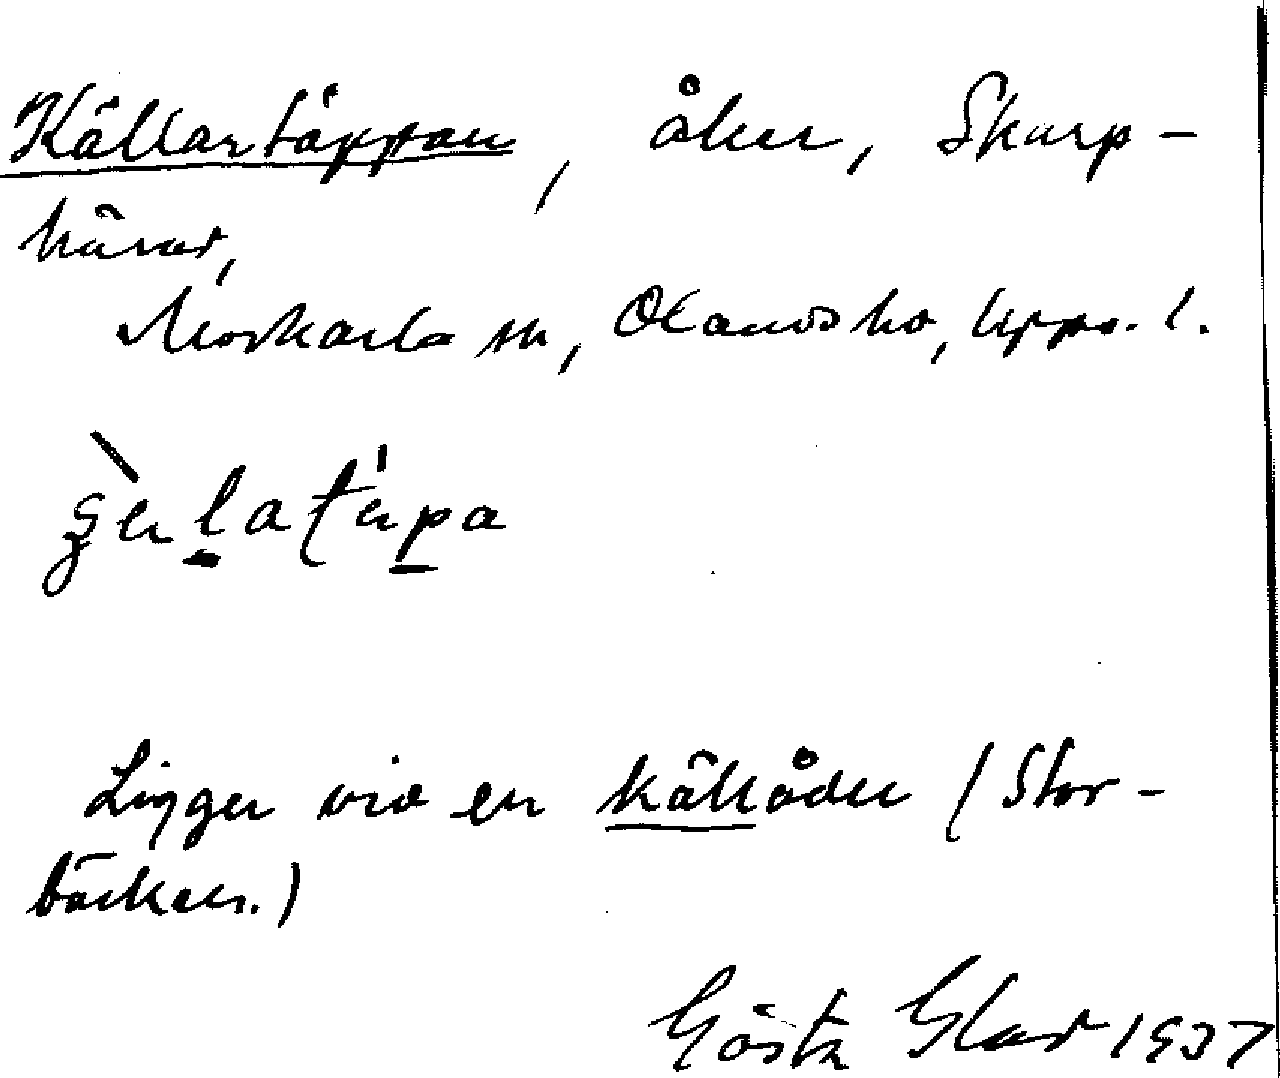 Källartäppan, åker, Skarp-
häret,
Morkarla sn, Olands hd, Upps. l.
Ligger vid en källåder (Stor-
bäcken.)
Gösta Glad 1937